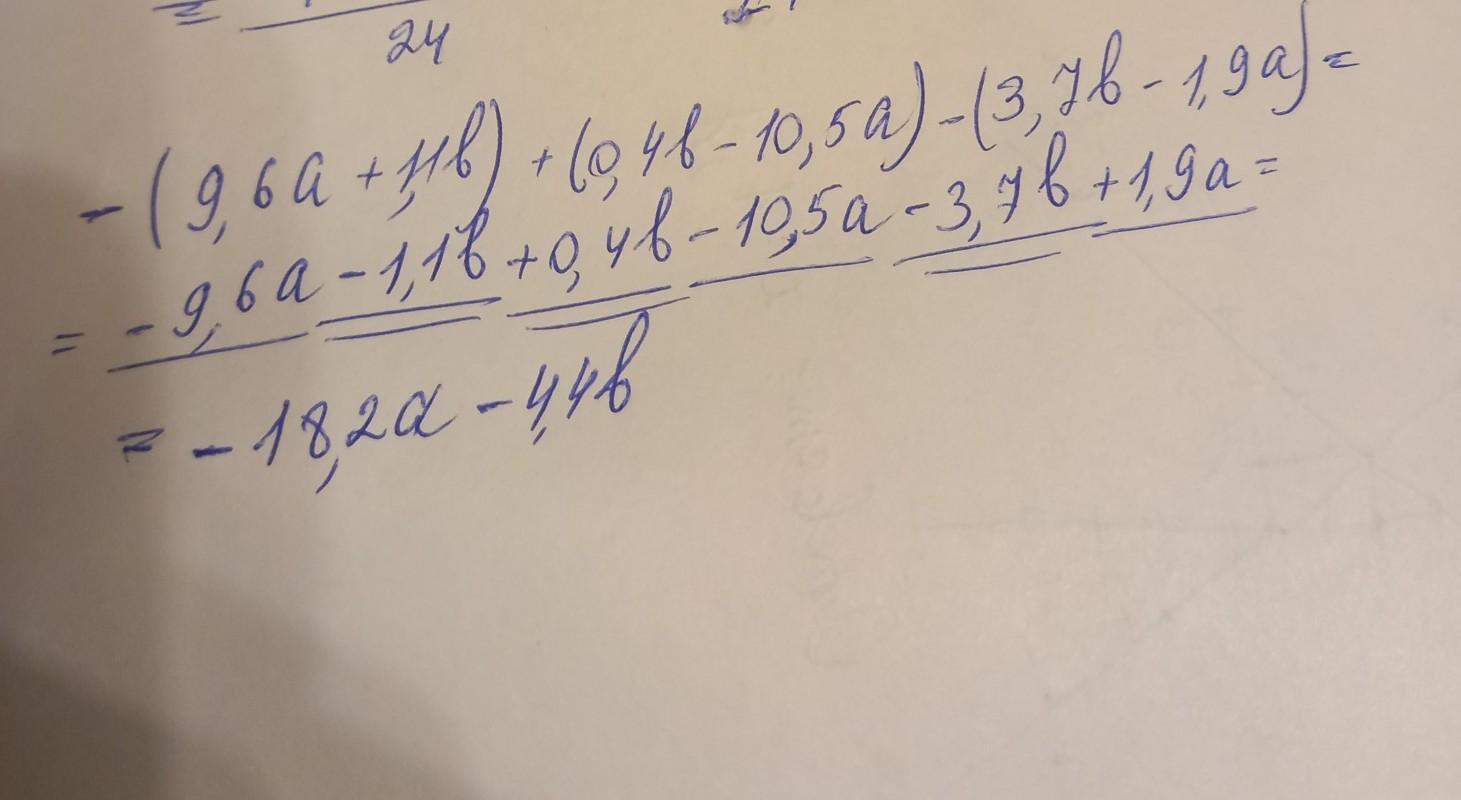 24
- (9,6a + 1,1b) + (0,4b - 10,5a) - (3,7b - 1,9a) =
= - 9,6a - 1,1b + 0,4b - 10,5a - 3,7b + 1,9a =
= - 18,2a - 4,4b